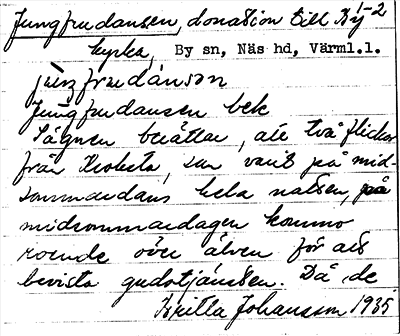 Jungfrudansen, donation till By-2
kyrka, By sn, Näs hd, Värml.l.
Jungfrudansen bek
Sägnen berättar, att två flickor
från Kroksta, som varit på mid-
sommardans hela natten, på
midsommardagen kommo
roende över älven för att
bevista gudstjänsten. Då de
Britta Johansson 1935